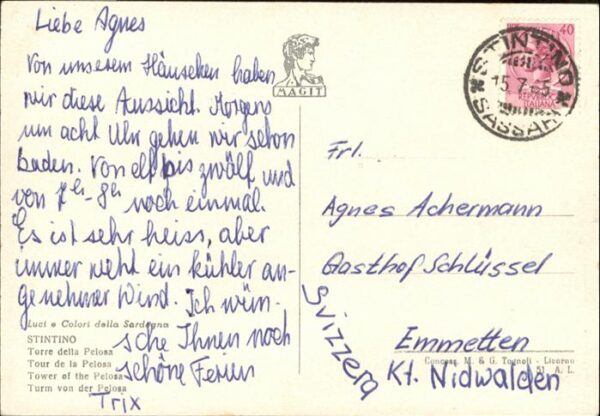 Liebe Agnes
Von unserem Häuschen haben
wir diese Aussicht. Morgens
um acht Uhr gehen wir schon
baden. Von elf bis zwölf und
von 7 - 8 noch einmal.
Es ist sehr heiss, aber
immer weht ein kühler an-
genehmer Wind. Ich wün-
sche Ihnen noch
schöne Ferien
Trix
Luci e Colori della Sardegna
STINTINO
Torre della Pelosa
Tour de la Pelosa
Tower of the Pelosa
Turm von der Pelosa
MAGIT
40
STINTINO
15.7.
SASSARI
ITALIANA
Frl.
Agnes Achermann
Gasthof Schlüssel
Emmetten
Kt. Nidwalden
Svizzera
Concess. M. & G. Tognoli - Livorno
A. L.